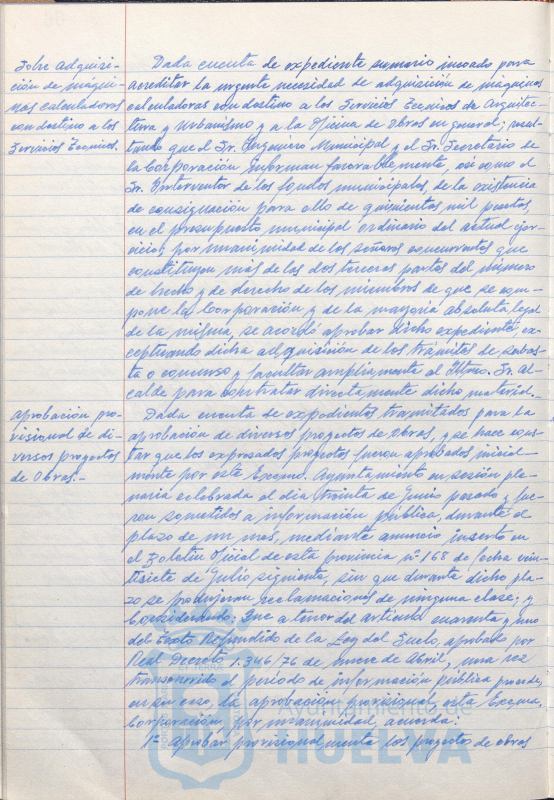 Sobre adquisi-
ción de máqui-
nas calculadoras
con destino a los
Servicios Técnicos.
Dada cuenta de expediente sumario incoado para
acreditar la urgente necesidad de adquisición de máquinas
calculadoras con destino a los Servicios Técnicos de Arquitec-
tura y Urbanismo y a la Oficina de Obras en general; resul-
tando que el Sr. Ingeniero Municipal y el Sr. Secretario de
la Corporación informan favorablemente, así como el
Sr. Interventor de los fondos municipales, de la existencia
de consignación para ello de quinientas mil pesetas,
en el presupuesto municipal ordinario del actual ejer-
cicio; por unanimidad de los señores concurrentes que
constituyen más de las dos terceras partes del número
de hecho y de derecho de los miembros de que se com-
pone la Corporación y de la mayoría absoluta legal
de la misma, se acordó aprobar dicho expediente, ex-
ceptuando dicha adquisición de los trámites de subas-
ta o concurso y facultar ampliamente al Iltmo. Sr. Al-
calde para contratar directamente dicho material.
Aprobación pro-
visional de di-
versos proyectos
de Obras.-
Dada cuenta de expedientes tramitados para la
aprobación de diversos proyectos de Obras, y se hace cons-
tar que los expresados proyectos fueron aprobados inicial-
mente por este Excmo. Ayuntamiento en sesión ple-
naria celebrada el día treinta de Junio pasado y fue-
ron sometidos a información pública, durante el
plazo de un mes, mediante anuncio inserto en
el Boletín Oficial de esta provincia nº 168 de fecha vein-
tisiete de Julio siguiente, sin que durante dicho pla-
zo se produjeran reclamaciones de ninguna clase; y
Considerando: Que a tenor del artículo cuarenta y uno
del Texto Refundido de la Ley del Suelo, aprobado por
Real Decreto 1.346/76 de nueve de Abril, una vez
transcurrido el período de información pública procede,
en su caso, la aprobación provisional, esta Excma.
Corporación, por unanimidad, acuerda:
1º Aprobar provisionalmente los proyectos de obras
Ayuntamiento de
HUELVA